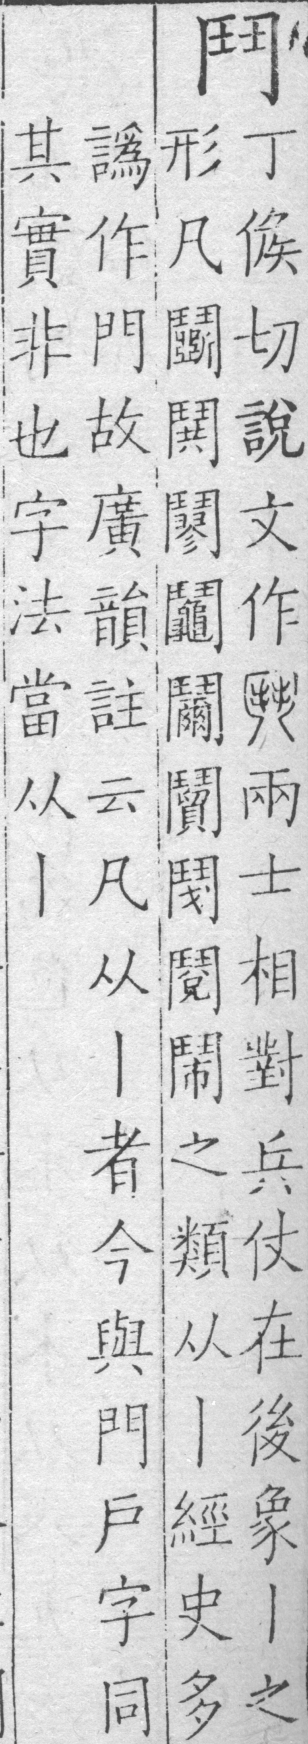 鬥
丁候切說文作兩士相對兵仗在後象丨之
形凡鬬鬨鬮鬩鬧之類从丨經史多
譌作門故廣韻註云凡从丨者今與門戶字同
其實非也字法當从丨